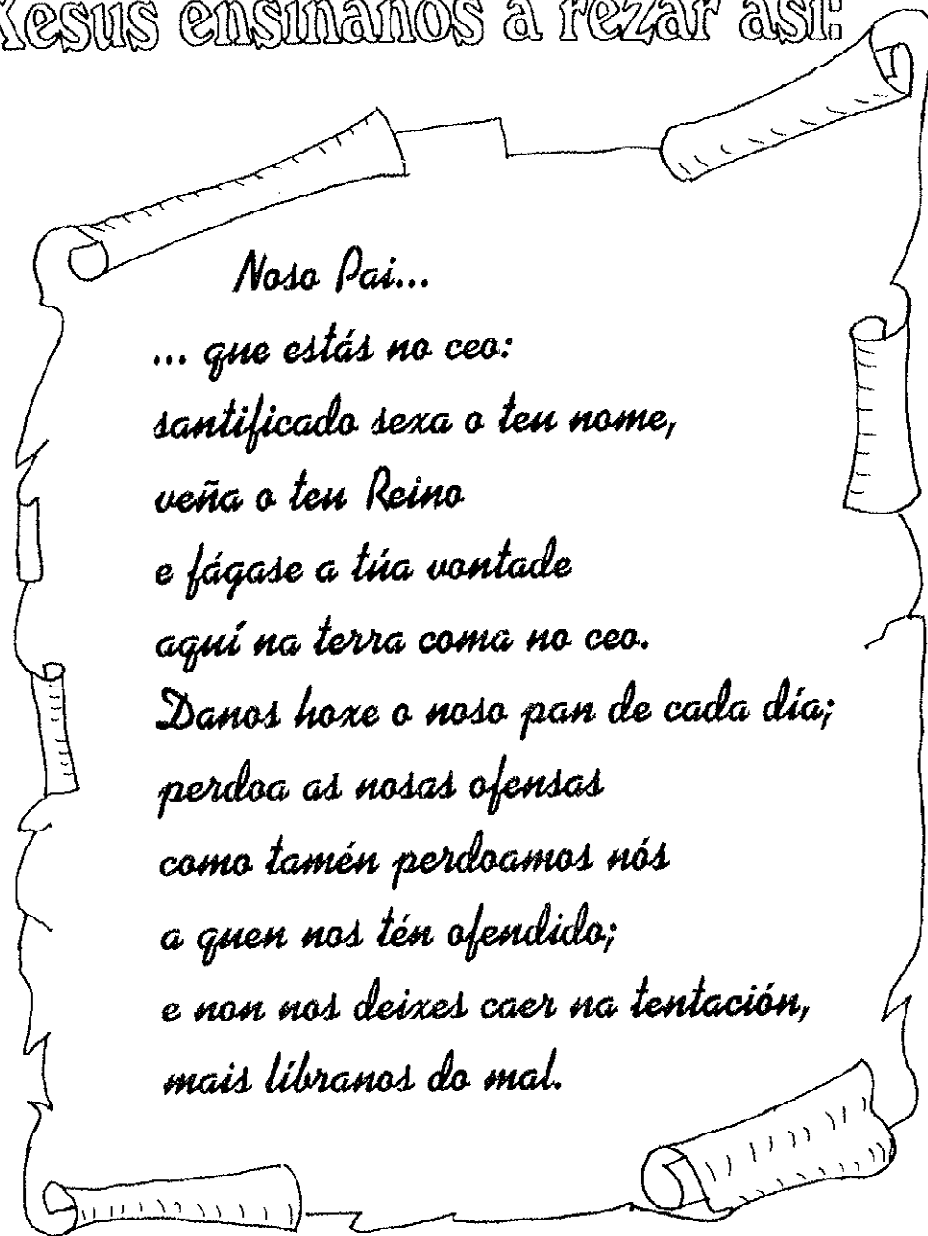 Xesús ensínanos a rezar así:
Noso Pai...
... que estás no ceo:
santificado sexa o teu nome,
veña o teu Reino
e fágase a túa vontade
aquí na terra coma no ceo.
Danos hoxe o noso pan de cada día;
perdoa as nosas ofensas
como tamén perdoamos nós
a quen nos tén ofendido;
e non nos deixes caer na tentación,
mais líbranos do mal.